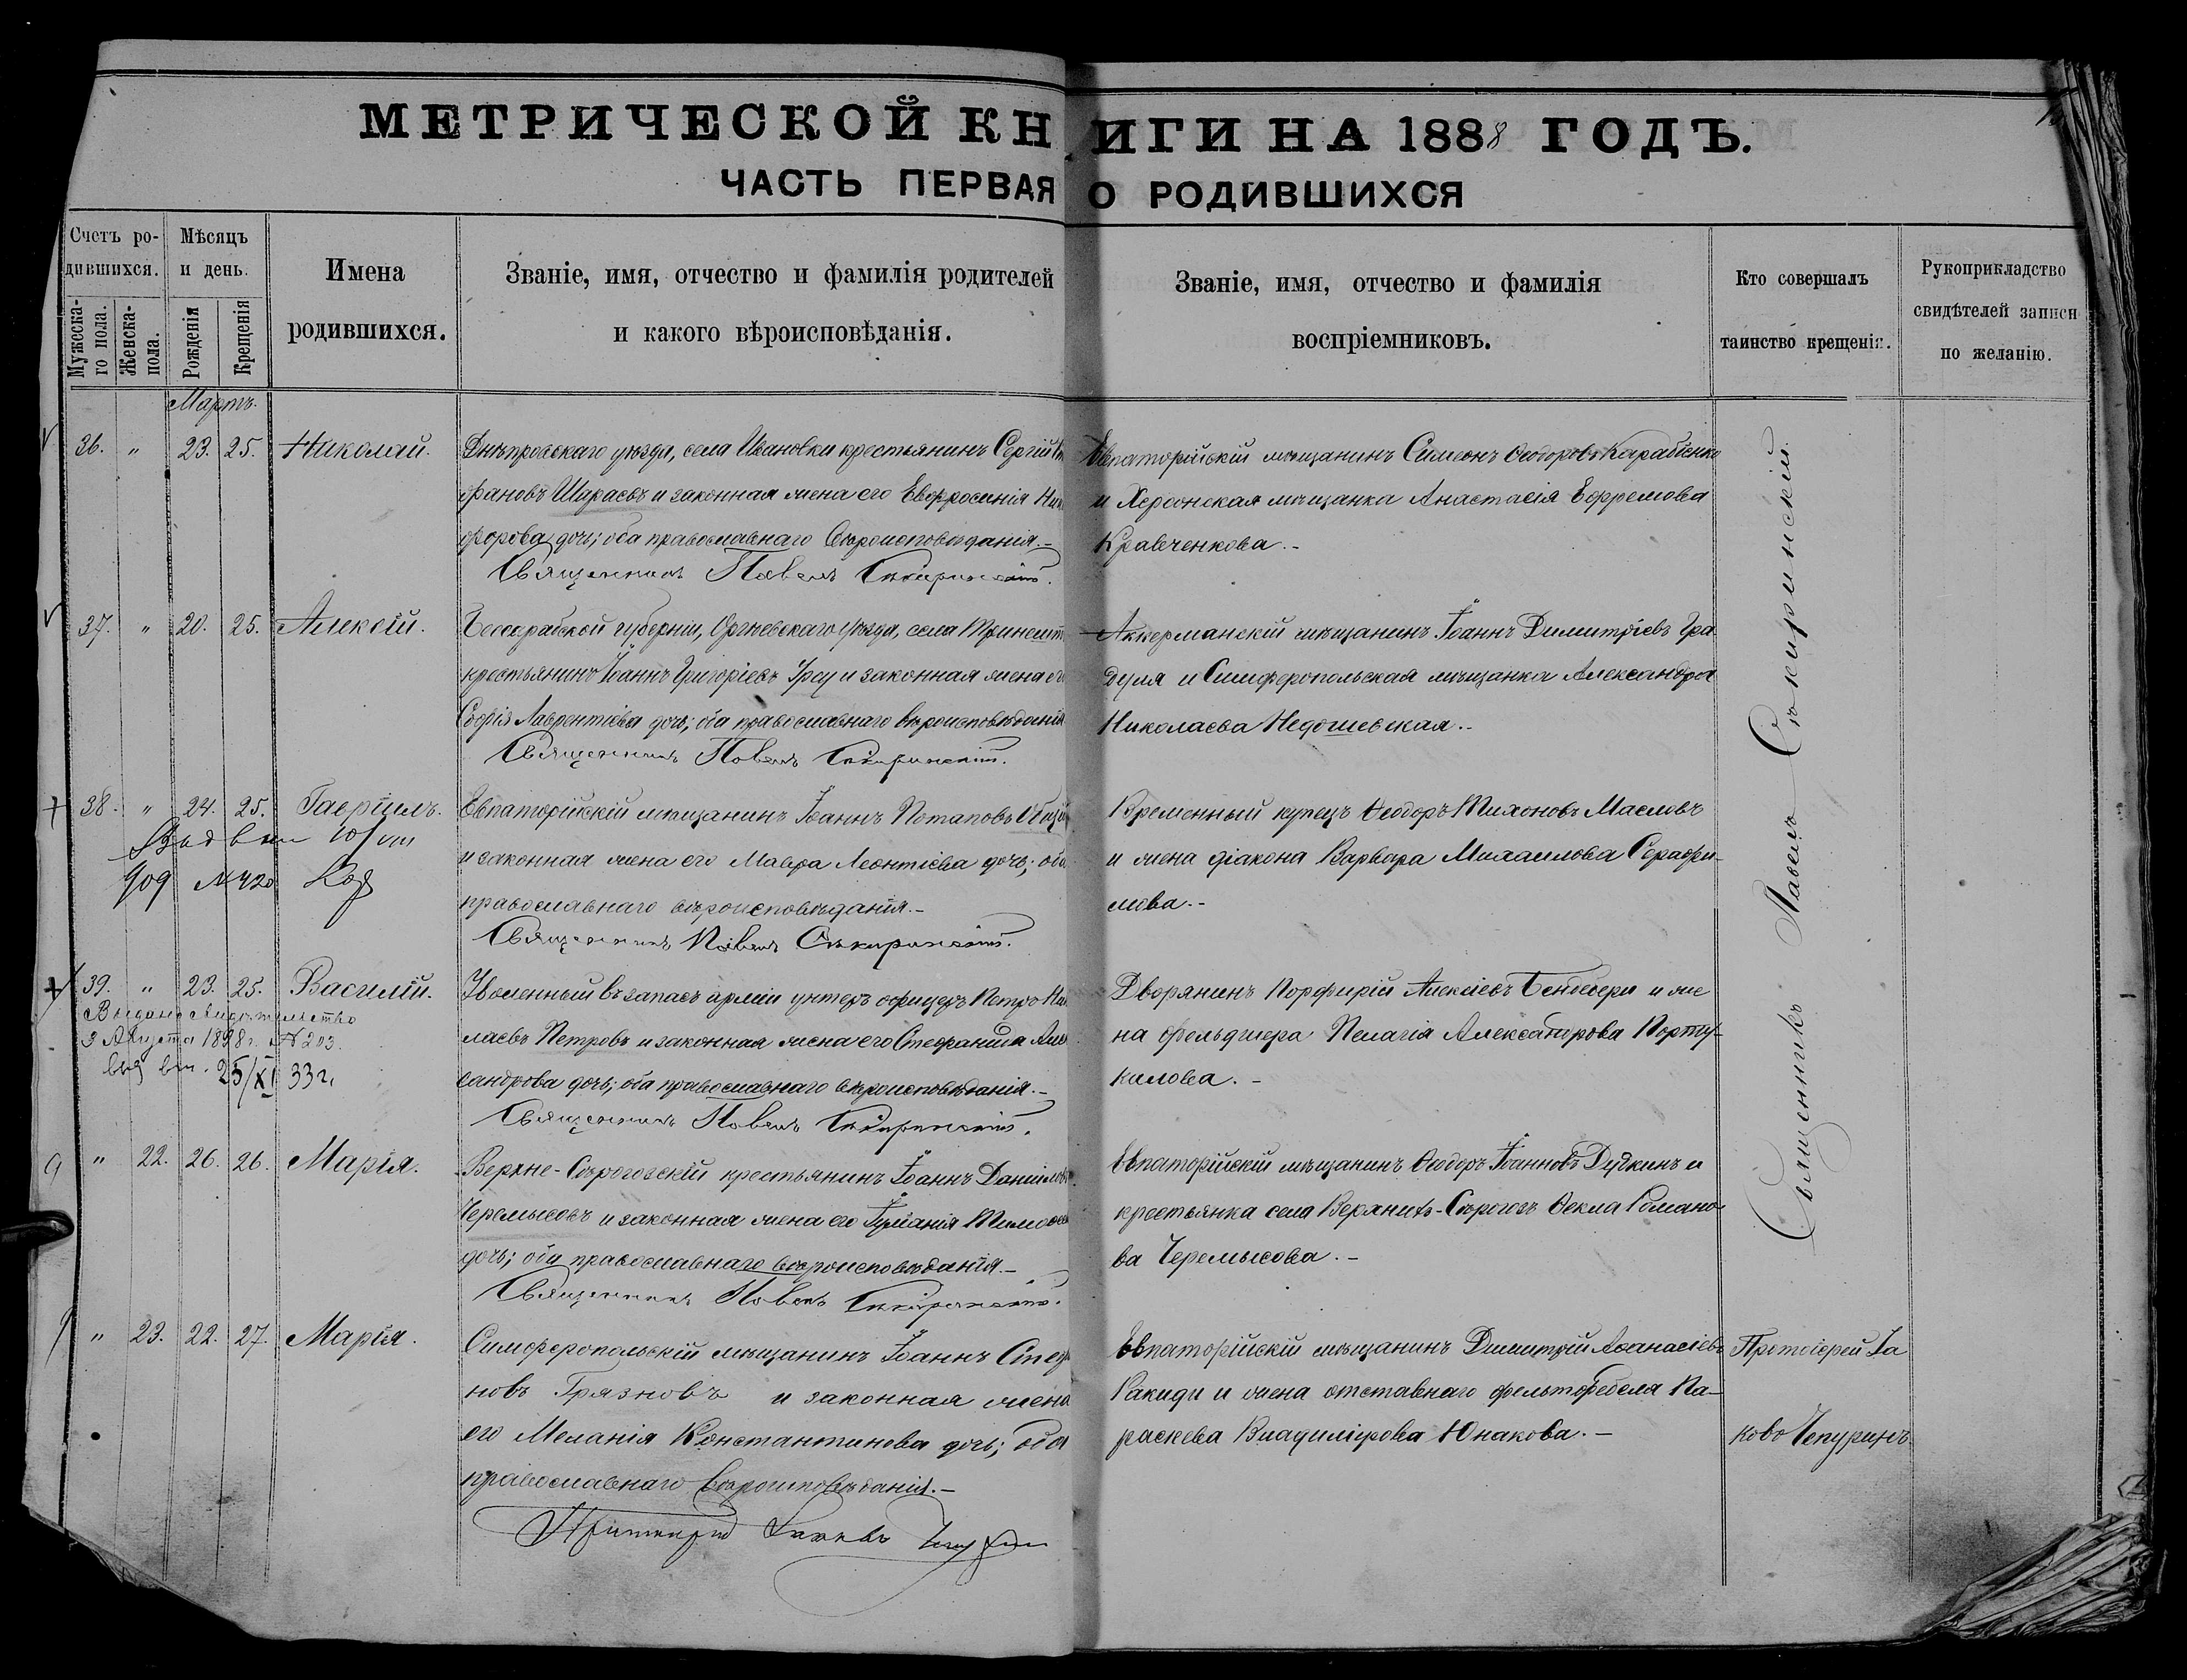 МЕТРИЧЕСКОЙ КНИГИ НА 1888 ГОДЪ.
ЧАСТЬ ПЕРВАЯ О РОДИВШИХСЯ
Счетъ ро-
дившихся.
Мужеска-
го пола.
Женска-
пола.
Мѣсяцъ
и день.
Рожденія
Крещенія
Имена
родившихся.
Званіе, имя, отчество и фамилія родителей
и какого вѣроисповѣданія.
Званіе, имя, отчество и фамилія
воспріемниковъ.
Кто совершалъ
таинство крещенія.
Рукоприкладство
свидѣтелей записи
по желанію.
Мартъ.
36. " 23. 25. Николай.
Днѣпровскаго уѣзда, села Ивановки крестьянинъ Сергій
фановъ Шираевъ и законная жена его Евфросинія Ни
форова дочь; оба православнаго вѣроисповѣданія.-
Священникъ Павелъ Сѣкиринскій.
Евпаторійскій мѣщанинъ Симеонъ Ѳеодоровъ Карабѣенко
и Херсонская мѣщанка Анастасія Ефремова
Кравченкова.-
37. " 20. 25. Алексій.
Бессарабской губерніи, Оргѣевскаго уѣзда, села
крестьянинъ Іоаннъ Григоріевъ Урсу и законная жена его
Софія Лаврентіева дочь; оба православнаго вѣроисповѣданія
Священникъ Павелъ Сѣкиринскій.
Аккерманскій мѣщанинъ Іоаннъ Димитріевъ Гра
дуля и Симферопольская мѣщанка Александра
Николаева Недошевская.-
38. " 24. 25. Гавріилъ.
909 №420
Евпаторійскій мѣщанинъ Іоаннъ Потаповъ
и законная жена его Мавра Леонтіева дочь; оба
православнаго вѣроисповѣданія.-
Священникъ Павелъ Сѣкиринскій.
Временный купецъ Ѳеодоръ Тихоновъ Масловъ
и жена діакона Варвара Михаилова Серафи-
мова.-
39. " 23. 25. Василій.
Выдано свидѣтельство
3 Августа 1898 г. №203.
25/XI 33 г.
Уволенный въ запасъ арміи унтеръ офицеръ Петръ Ни
лаевъ Петровъ и законная жена его Стефанида Алек
сандрова дочь; оба православнаго вѣроисповѣданія.-
Священникъ Павелъ Сѣкиринскій.
Дворянинъ Порфирій Алексіевъ Бендебери и же
на фельдшера Пелагія Александрова Порту-
калова.-
" 22. 26. 26. Марія.
Верхне-Сѣрогозскій крестьянинъ Іоаннъ Даніиловъ
Черемысовъ и законная жена его Іуліанія Тимоѳеева
дочь; оба православнаго вѣроисповѣданія.-
Священникъ Павелъ Сѣкиринскій.
Евпаторійскій мѣщанинъ Ѳеодоръ Іоанновъ Дудкинъ и
крестьянка села Верхнихъ-Сѣрогозъ Ѳекла Романо-
ва Черемысова.-
Священникъ Павелъ Сѣкиринскій
" 23. 22. 27. Марія.
Симферопольскій мѣщанинъ Іоаннъ Стефа
новъ Грязновъ и законная жена
его Меланія Константинова дочь; оба
православнаго вѣроисповѣданія.-
Протоіерей Іаковъ Чепуринъ
Евпаторійскій мѣщанинъ Димитрій Аѳанасіевъ
Ракиди и жена отставнаго фельтфебеля Па-
раскева Владимірова Юнакова.-
Протоіерей Іа
ковъ Чепуринъ.